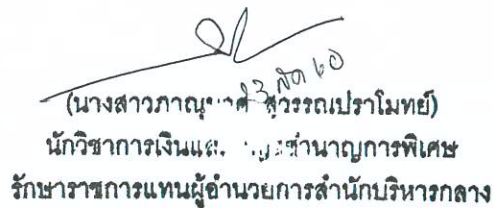 23 สค 60
(นางสาว สุวรรณปราโมทย์)
นักวิชาการเงินและ ชำนาญการพิเศษ
รักษาราชการแทนผู้อำนวยการสำนักบริหารกลาง